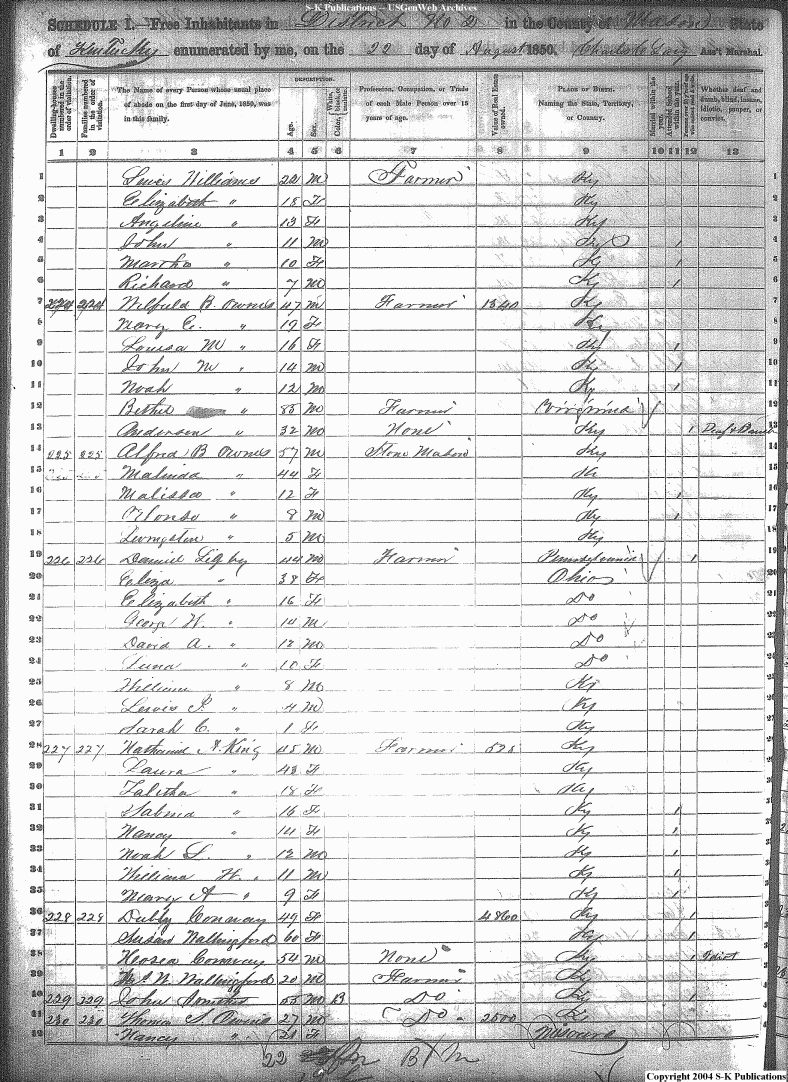 S-K Publications — USGenWeb Archives
SCHEDULE I.—Free Inhabitants in District No 2 in the County of Mason State
of Kentucky enumerated by me, on the 22 day of August 1850. Charles C Ass't Marshal.
Dwelling-houses numbered in the order of visitation.
Families numbered in the order of visitation.
The Name of every Person whose usual place of abode on the first day of June, 1850, was in this family.
DESCRIPTION.
Age.
Sex.
Color, White, black, or mulatto.
Profession, Occupation, or Trade of each Male Person over 15 years of age.
Value of Real Estate owned.
PLACE OF BIRTH. Naming the State, Territory, or Country.
Married within the year.
Attended School within the year.
Persons over 20 y'rs of age who cannot read & write.
Whether deaf and dumb, blind, insane, idiotic, pauper, or convict.
1 2 3 4 5 6 7 8 9 10 11 12 13
1 Lewis Williams 22 M Farmer Ky 1
2 Elizabeth " 18 F Ky 2
3 Angeline " 13 F Ky 3
4 John " 11 M Ky / 4
5 Martha " 10 F Ky / 5
6 Richard " 7 M Ky / 6
7 224 224 Wilfuld B. Ownes 47 M Farmer 1340 Ky 7
8 Mary E. " 19 F Ky 8
9 Louisa M " 16 F Ky / 9
10 John M " 14 M Ky / 10
11 Noah " 12 M Ky / 11
12 Bethel " 83 M Farmer Virginia 12
13 Anderson " 32 M None Ky / Deaf & Dumb 13
14 225 225 Alfred B Ownes 57 M Stone Mason Ky 14
15 Malinda " 44 F Ky 15
16 Malissa " 12 F Ky / 16
17 Alonso " 8 M Ky / 17
18 Livingston " 5 M Ky 18
19 226 226 Daniel 44 M Farmer Pennsylvania / 19
20 Eliza " 38 F Ohio 20
21 Elizabeth " 16 F Do 21
22 George W. " 14 M Do 22
23 David A. " 12 M Do 23
24 " 10 F Do 24
25 William " 8 M Ky 25
26 Lewis P. " 4 M Ky 26
27 Sarah C. " 1 F Ky 27
28 227 227 Nathaniel A. King 45 M Farmer 525 Ky 28
29 Laura " 43 F Ky 29
30 Talitha " 18 F Ky 30
31 Sabina " 16 F Ky / 31
32 Nancy " 14 F Ky / 32
33 Noah L. " 12 M Ky / 33
34 William H. " 11 M Ky / 34
35 Mary A " 9 F Ky / 35
36 228 228 Conway 49 F 4860 Ky / 36
37 Susan Wallingford 60 F Ky / 37
38 Hosea Conway 54 M None Ky / Idiot 38
39 Wm. W. Wallingford 20 M Farmer Ky 39
40 229 229 John 55 M B Do Ky / 40
41 230 230 Thomas S. Owens 27 M Do 2500 Ky 41
42 Nancy " 21 F Missouri 42
22 B M
Copyright 2004 S-K Publications